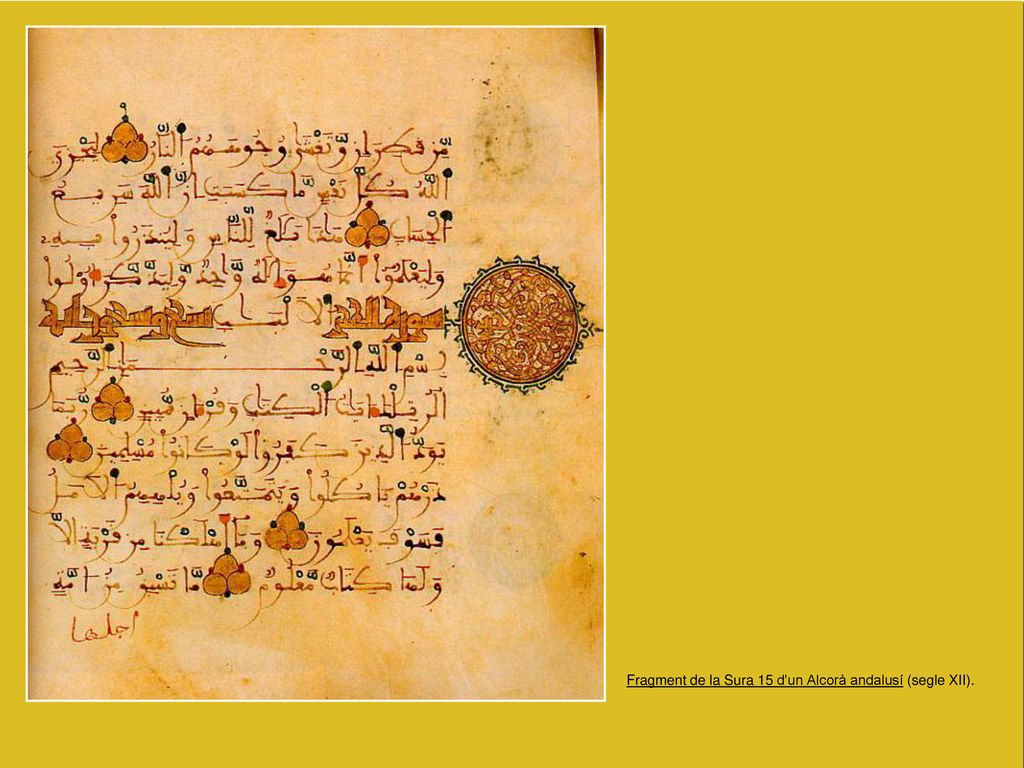 مِّن قَطِرَانٍ وَّتَغْشَىٰ وُجُوهَهُمُ النَّارُ لِيَجْزِيَ
اللَّهُ كُلَّ نَفْسٍ مَّا كَسَبَتْ إِنَّ اللَّهَ سَرِيعُ
الْحِسَابِ هَٰذَا بَلَٰغٌ لِّلنَّاسِ وَلِيُنذَرُوا بِهِ
وَلِيَعْلَمُوا أَنَّمَا هُوَ إِلَٰهٌ وَّاحِدٌ وَّلِيَذَّكَّرَ أُولُوا
سورة الحجر الالبب تسع وتسعون اية
بِسْمِ اللَّهِ الرَّحْمَٰنِ الرَّحِيمِ
الر تِلْكَ ءَايَٰتُ الْكِتَٰبِ وَقُرْءَانٍ مُّبِينٍ رُّبَمَا
يَوَدُّ الَّذِينَ كَفَرُوا لَوْ كَانُوا مُسْلِمِينَ
ذَرْهُمْ يَاكُلُوا وَيَتَمَتَّعُوا وَيُلْهِهِمُ الْأَمَلُ
فَسَوْفَ يَعْلَمُونَ وَمَا أَهْلَكْنَا مِن قَرْيَةٍ إِلَّا
وَلَهَا كِتَابٌ مَّعْلُومٌ مَّا تَسْبِقُ مِنْ أُمَّةٍ
اجلها
Fragment de la Sura 15 d'un Alcorà andalusí (segle XII).